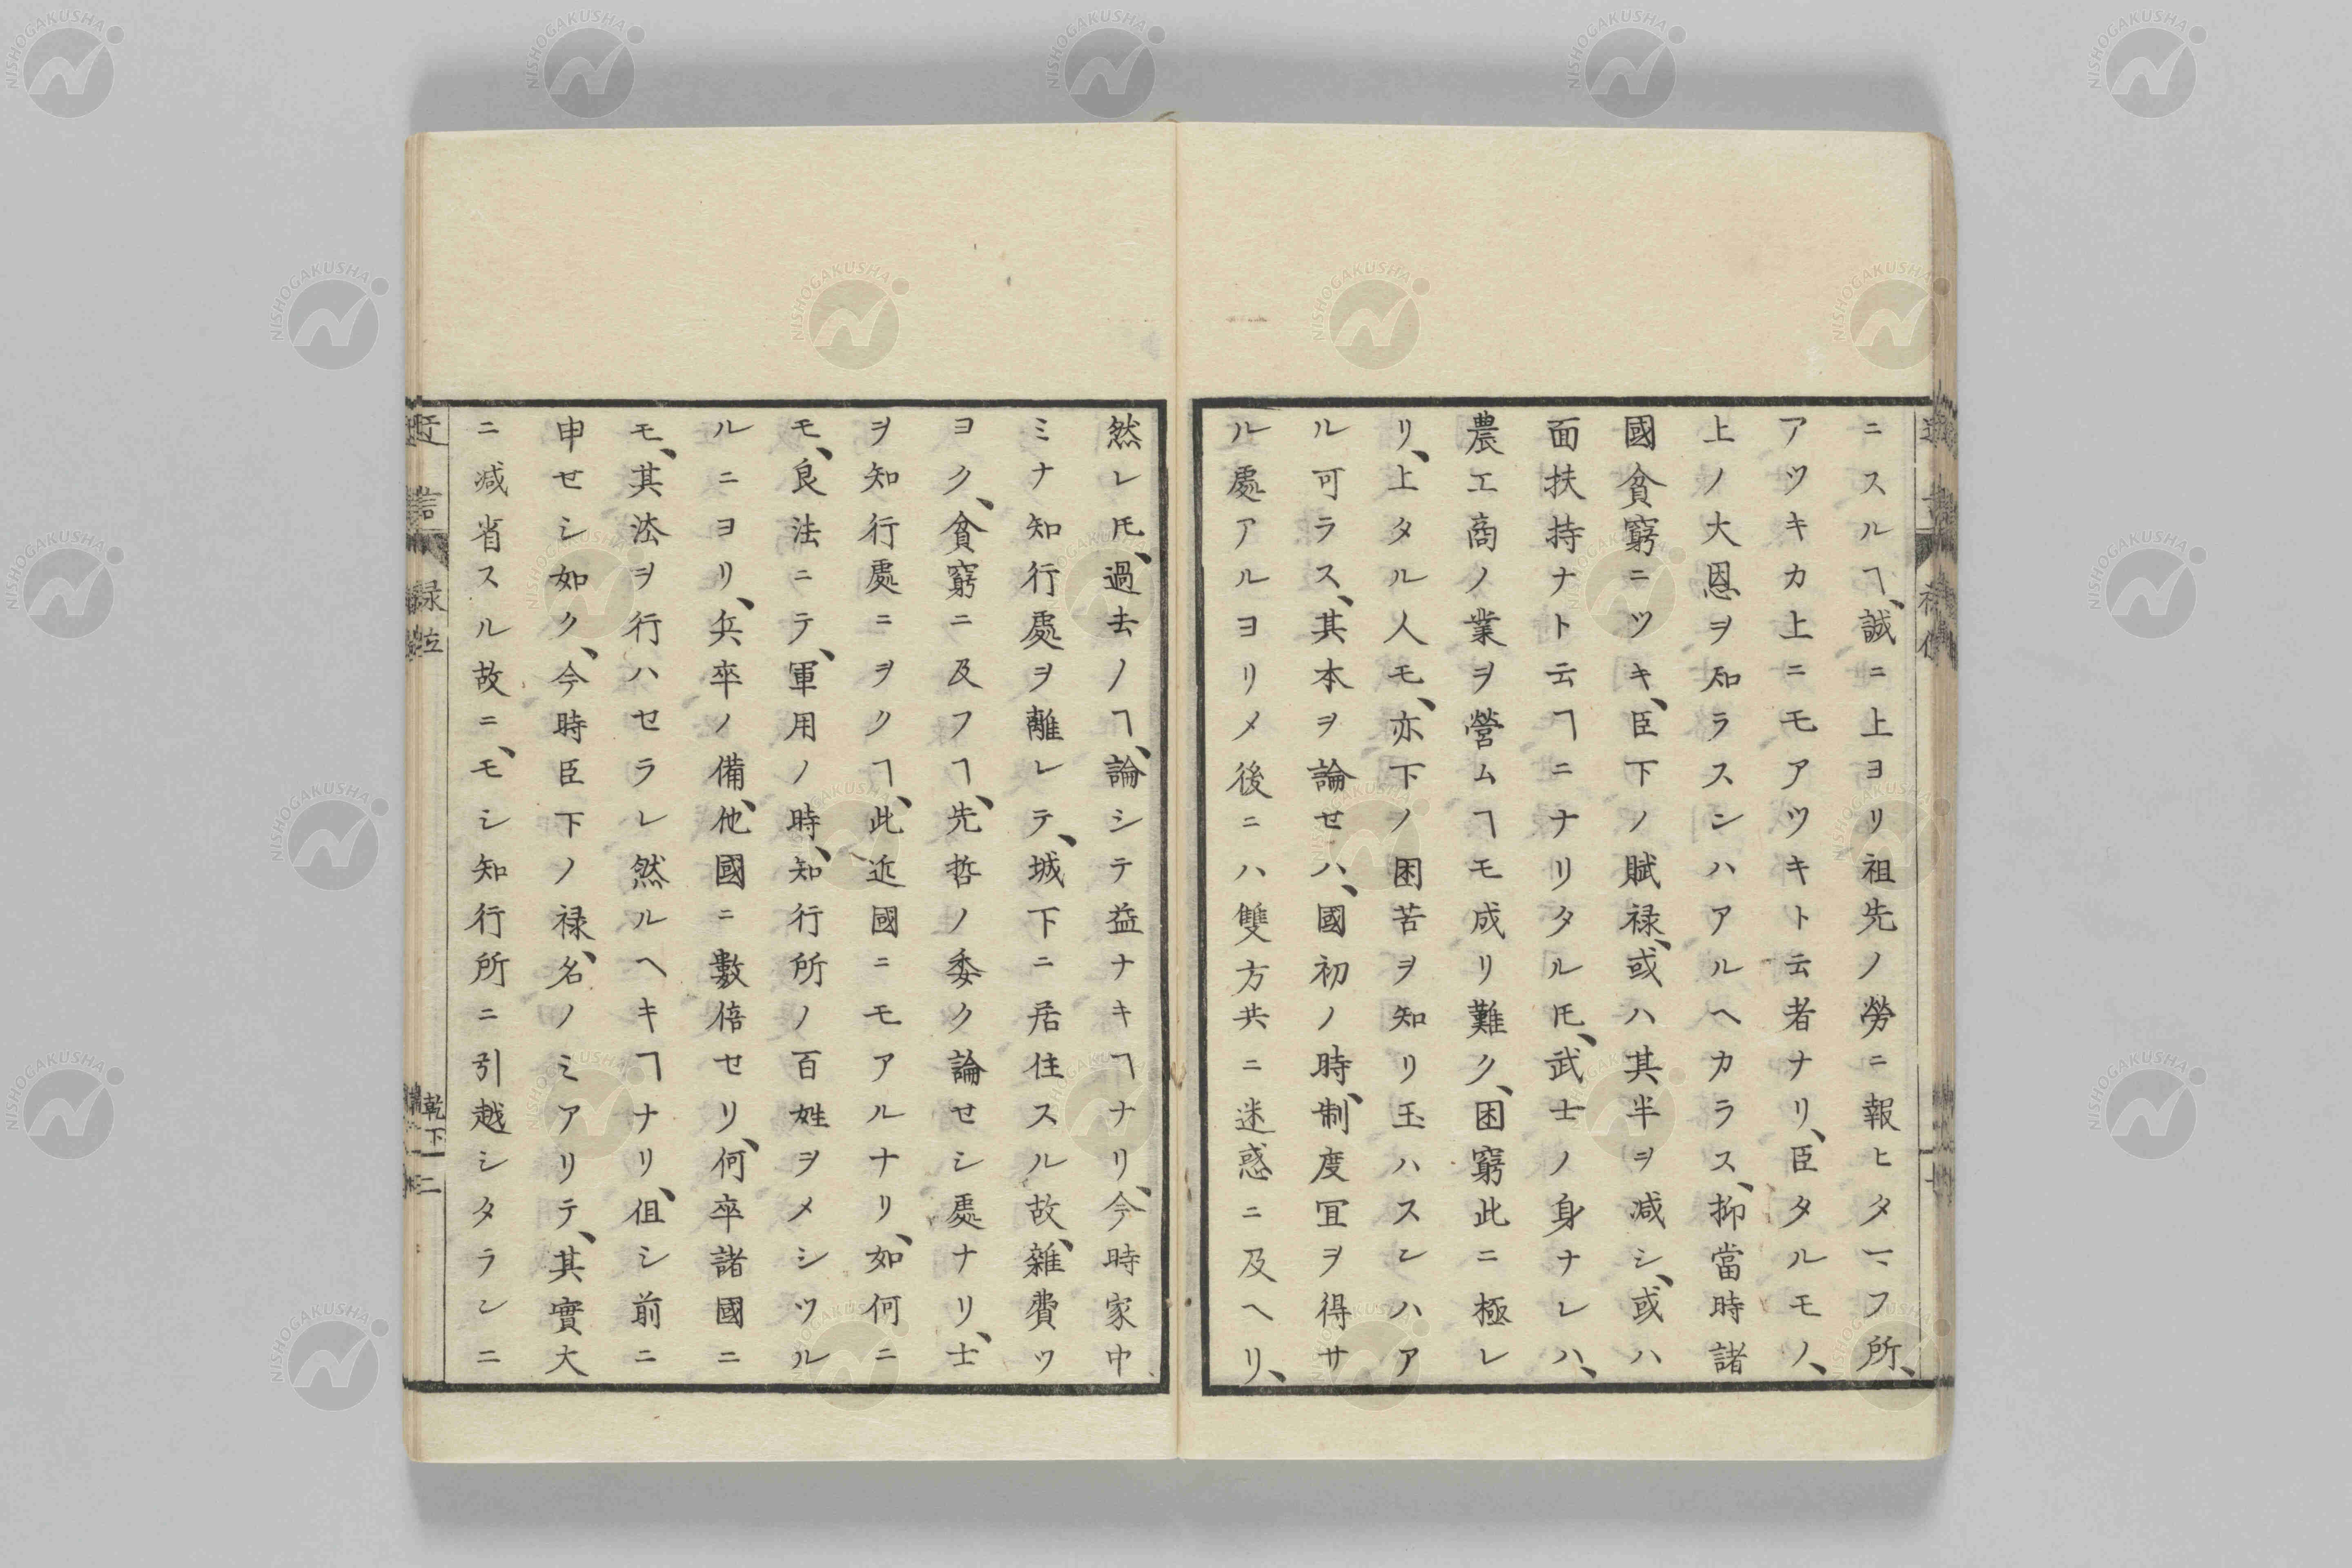 ニスルヿ、誠ニ上ヨリ祖先ノ勞ニ報ヒタマフ所、
アツキカ上ニモアツキト云者ナリ、臣タルモノ、
上ノ大恩ヲ知ラスンハアルヘカラス、抑當時諸
國貧窮ニツキ、臣下ノ賦禄、或ハ其半ヲ减シ、或ハ
面扶持ナト云ヿニナリタル𪜈、武士ノ身ナレハ、
農工商ノ業ヲ營ムヿモ成リ難ク、困窮此ニ極レ
リ、上タル人モ、亦下ノ困苦ヲ知リ玉ハスンハア
ル可ラス、其本ヲ論セハ、國初ノ時、制度冝ヲ得サ
ル處アルヨリメ後ニハ雙方共ニ迷惑ニ及ヘリ、
然レ𪜈、過去ノヿ、論シテ益ナキヿナリ、今時家中
ミナ知行處ヲ離レテ、城下ニ居住スル故、雜費ッ
ヨク、貧窮ニ及フヿ、先哲ノ委ク論セシ處ナリ、士
ヲ知行處ニヲクヿ、此近國ニモアルナリ、如何ニ
モ、良法ニテ、軍用ノ時、知行所ノ百姓ヲメシツル
ルニヨリ、兵卒ノ備、他國ニ數倍セリ、何卒諸國ニ
モ、其法ヲ行ハセラレ然ルヘキヿナリ、伹シ前ニ
申セシ如ク、今時臣下ノ禄、名ノミアリテ、其實大
ニ减省スル故ニ、モシ知行所ニ引越シタランニ
乾下
NISHOGAKUSHA